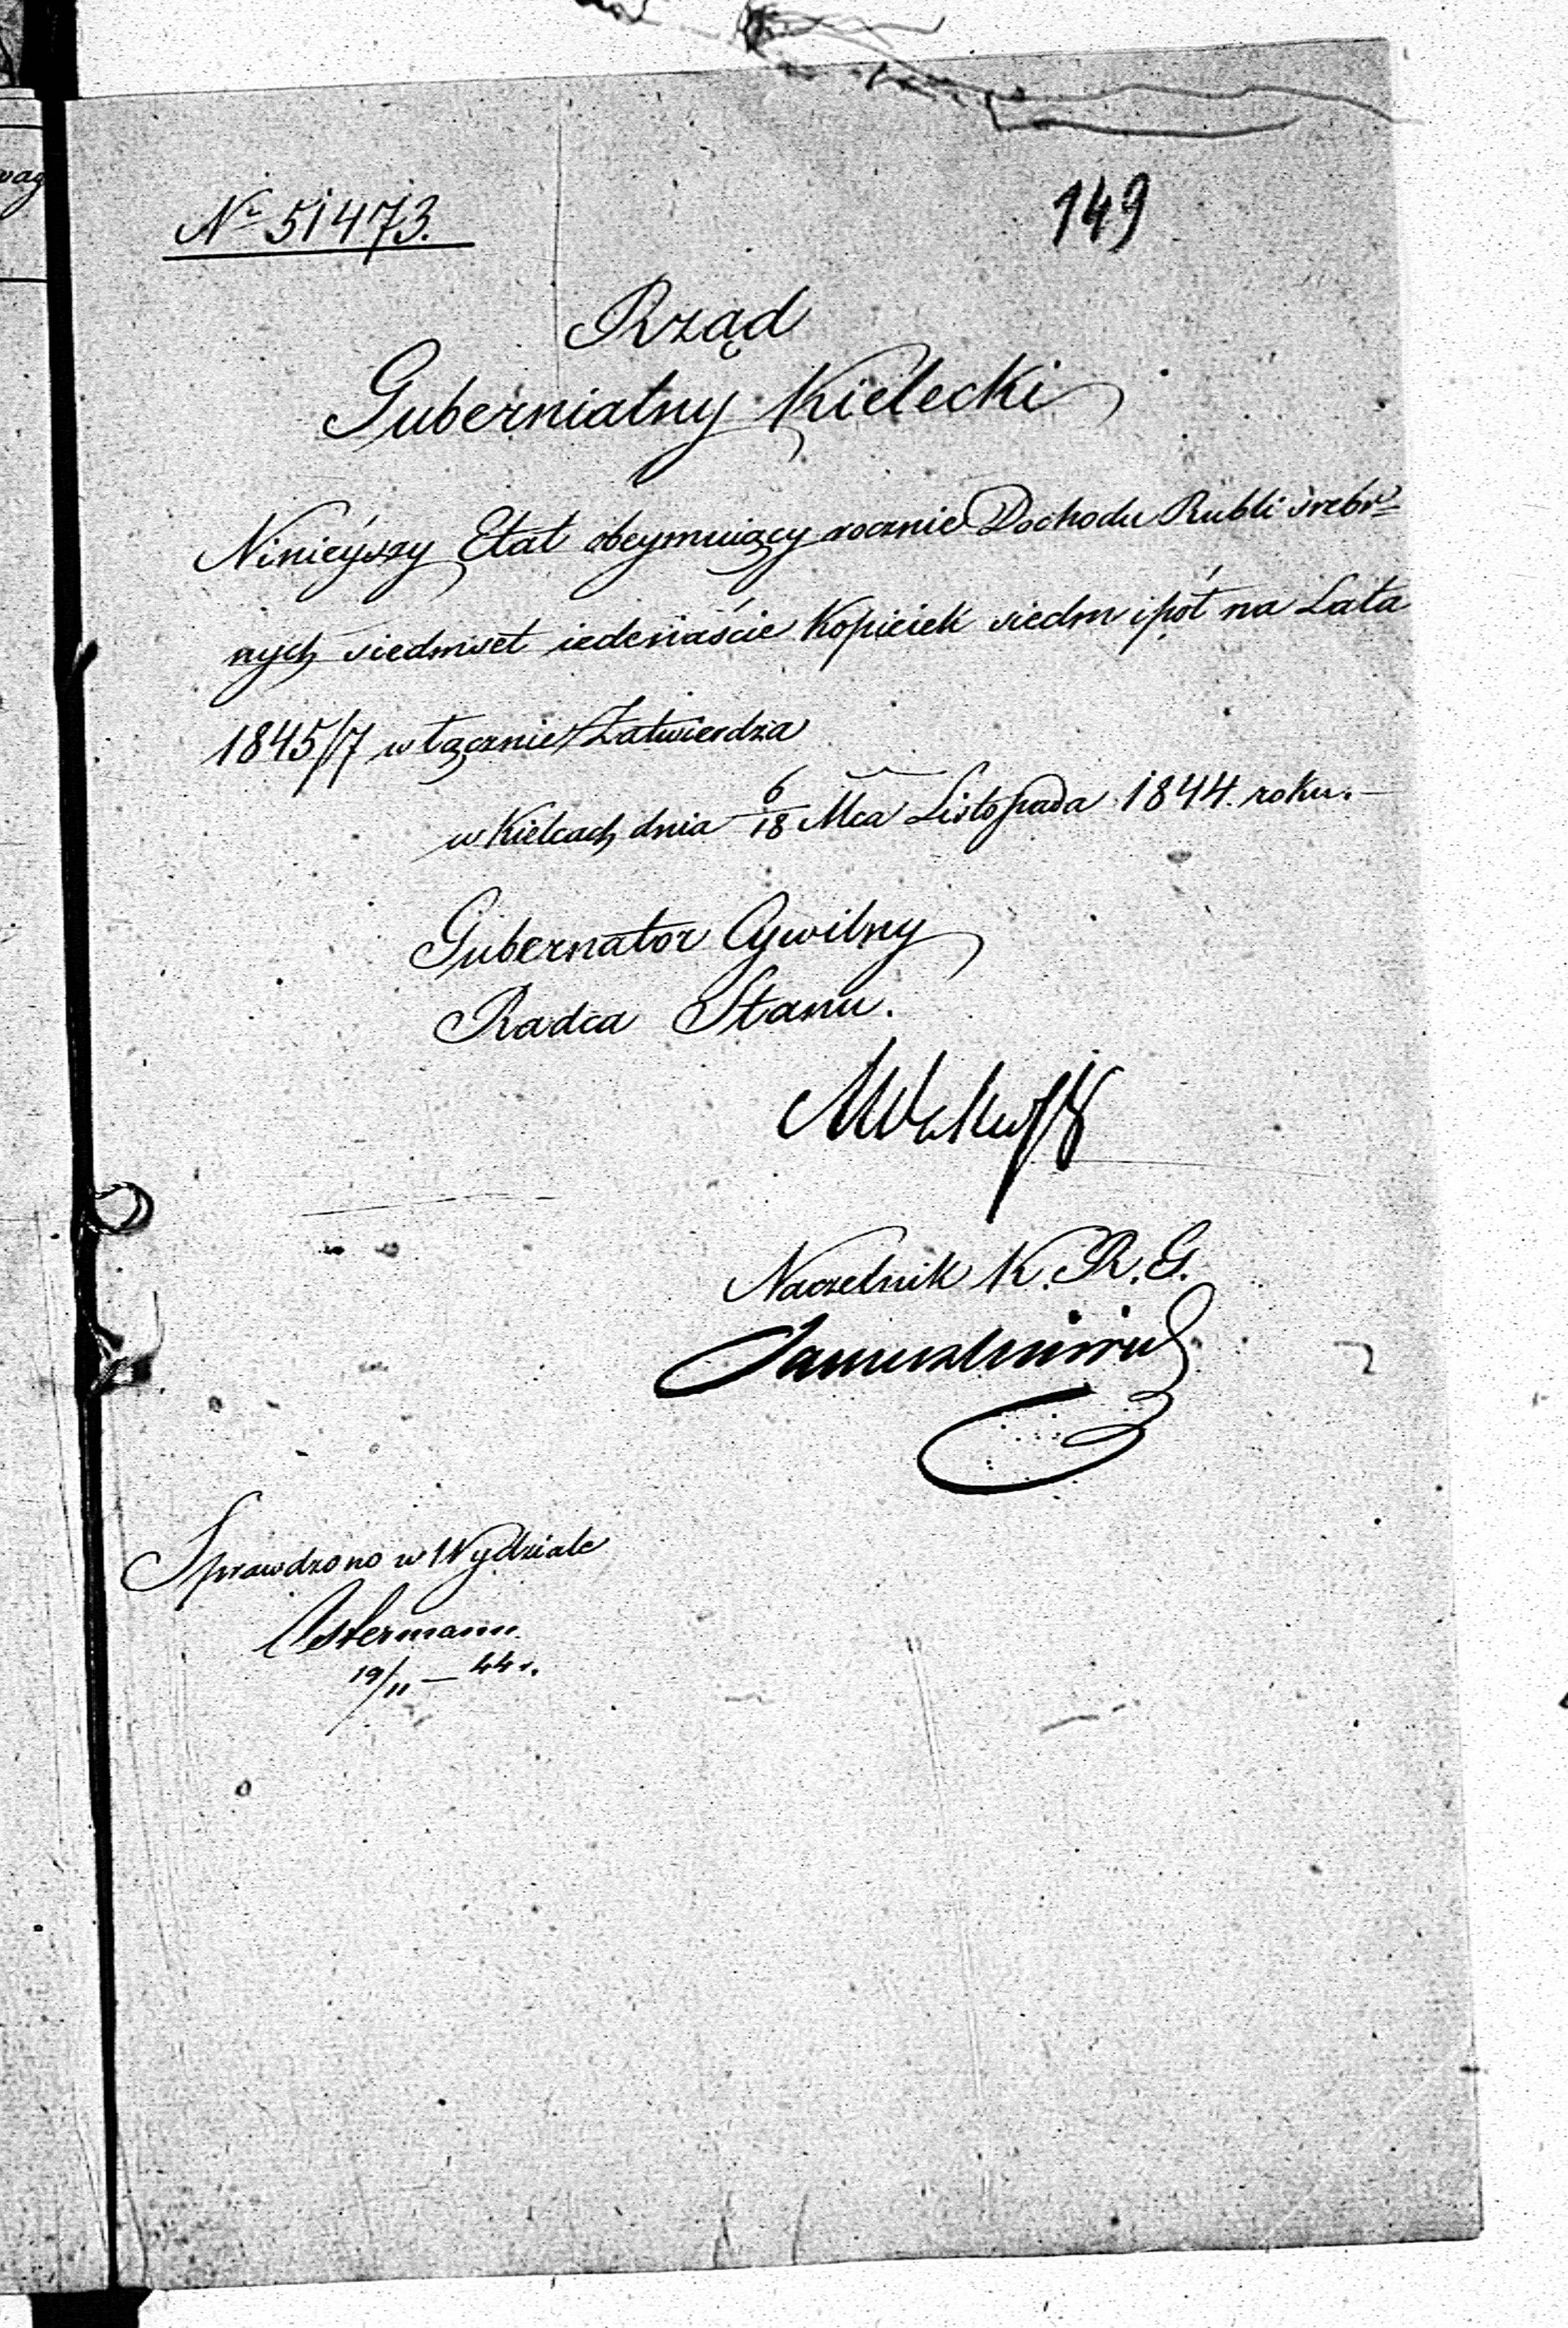 149
Nr 51473.
Rząd
Gubernialny Kielecki
Ninieyszy Etat obeymuiący rocznie Dochodu Rubli srebr=
nych siedmset iedenaście Kopieiek siedm i pół na Lata
1845/7 włącznie Zatwierdza
w Kielcach dnia 6/18 Mca Listopada 1844 roku.
Gubernator Cywilny
Radca Stanu.
Naczelnik K. R. G.
Sprawdzono w Wydziale
Ostermann
19/11 – 44 r.